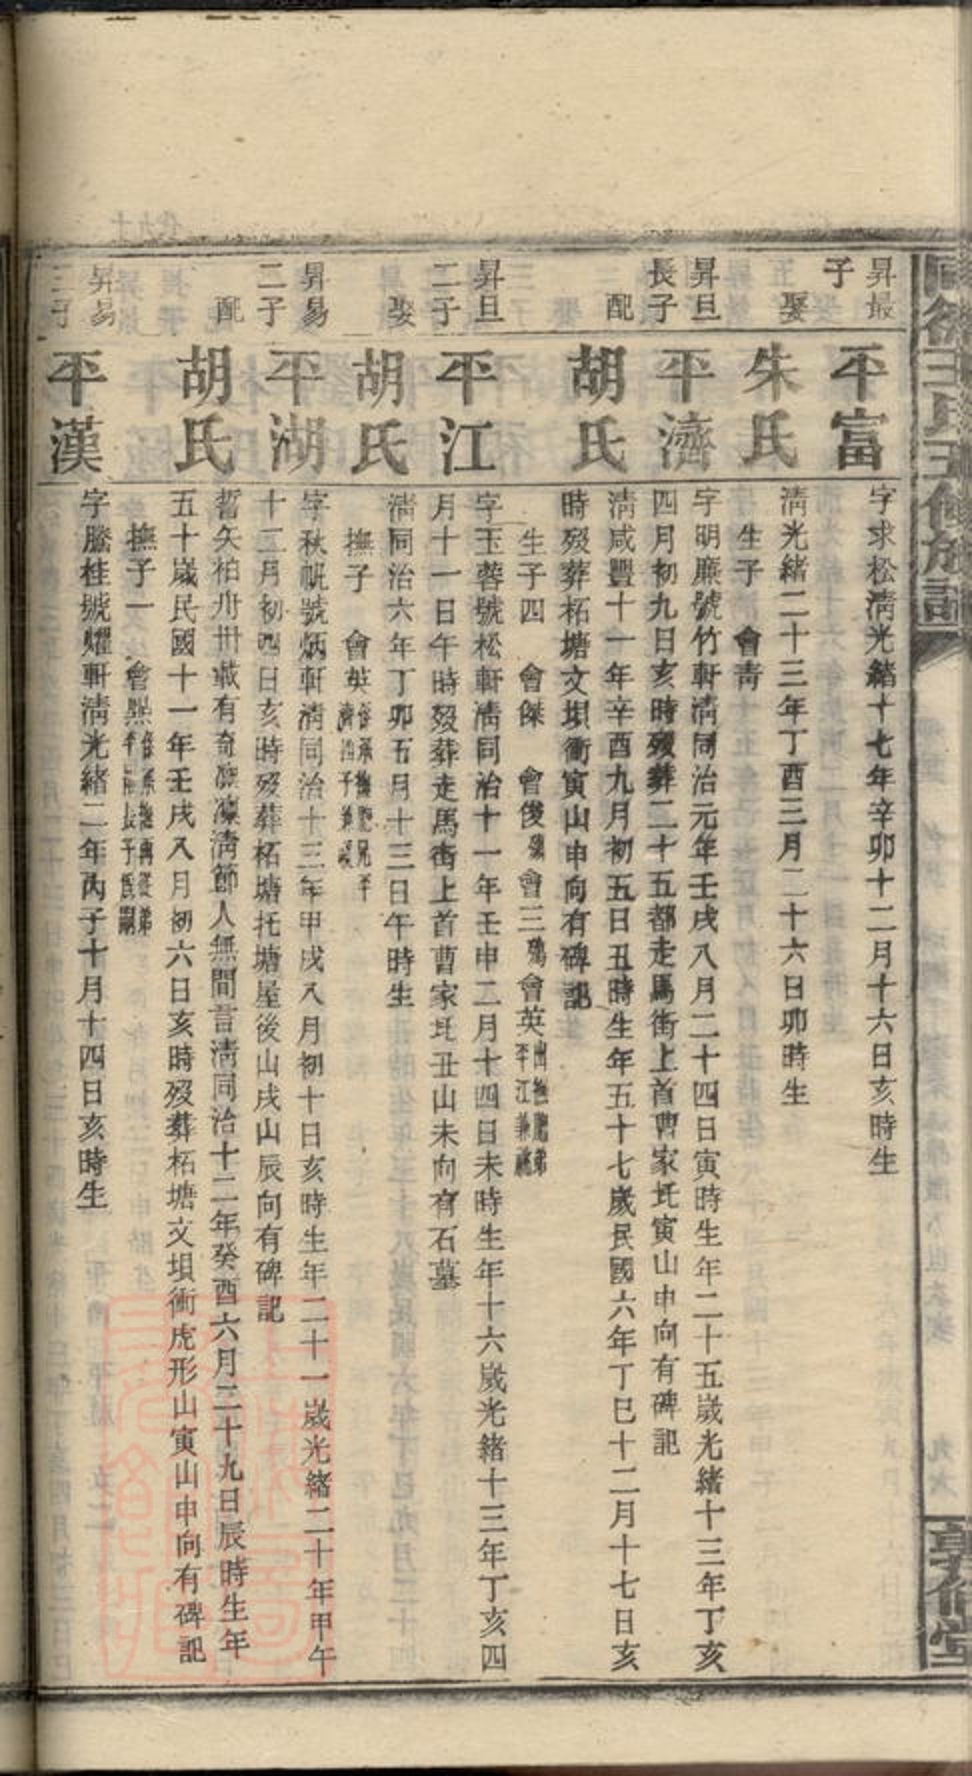 王氏五修族譜
敦倫堂
昇最
子
平富
字求松清光緒十七年辛卯十二月十六日亥時生
娶
朱氏
清光緒二十三年丁酉三月二十六日卯時生
生子 會青
昇旦
長子
平濟
字明廉號竹軒清同治元年壬戌八月二十四日寅時生年二十五歲光緒十三年丁亥
四月初九日亥時歿葬二十五都走馬街上首曹家坵寅山申向有碑記
配
胡氏
清咸豐十一年辛酉九月初五日丑時生年五十七歲民國六年丁巳十二月十七日亥
時歿葬柘塘文垻衝寅山申向有碑記
生子四 會傑 會俊殤會三殤會英出撫胞弟
平江兼祧
昇旦
二子
平江
字玉蓉號松軒清同治十一年壬申二月十四日未時生年十六歲光緒十三年丁亥四
月十一日午時歿葬走馬街上首曹家坵丑山未向有石墓
娶
胡氏
清同治六年丁卯五月十三日午時生
撫子 會英係承撫胞兄平
濟四子兼祧
昇易
二子
平湖
字秋帆號炳軒清同治十三年甲戌八月初十日亥時生年二十一歲光緒二十年甲午
十二月初四日亥時歿葬柘塘托塘屋後山戌山辰向有碑記
配
胡氏
誓矢柏舟卅載有奇懍凜清節人無間言清同治十二年癸酉六月二十九日辰時生年
五十歲民國十一年壬戌八月初六日亥時歿葬柘塘文垻衝虎形山寅山申向有碑記
撫子一 會熙係承撫再從弟
長子為嗣
昇易
三子
平漢
字騰桂號燿軒清光緒二年丙子十月十四日亥時生